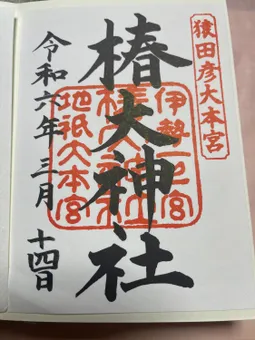 猿田彦大本宮
伊勢一之宮
椿大神社
地祇大本宮
椿大神社
令和六年三月十四日